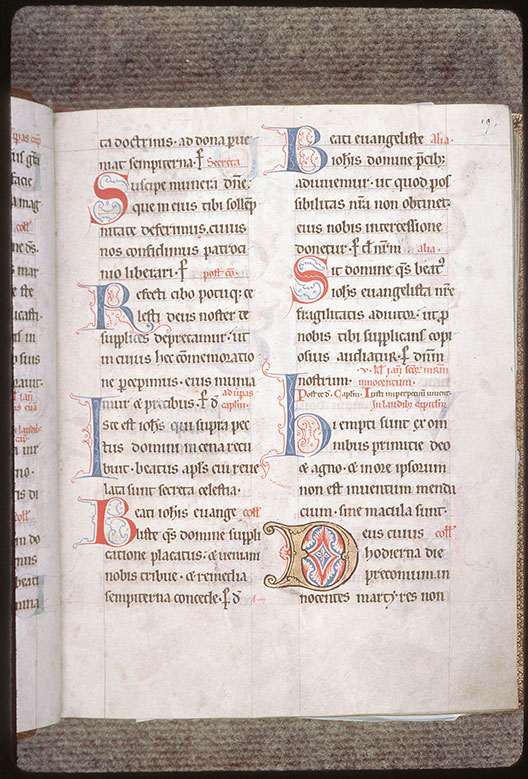 19.
ta doctrinis. ad dona p̱ue
niat sempiterna. ꝑ Secreta
Suscipe munera dn̄e.
que in eius tibi sollēp
nitate deferimus. cuius
nos confidimus patroci
nio liberari. ꝑ post cō.
Refecti cibo potuq; ce
lesti deus noster te
supplices deprecamur. ut
in cuius hec cōmemoratio
ne ꝑcepimus. eius munia
mur & precibus. ꝑ d̄
Iste est iohs̄ qui supra pec
tus domini in cena recu
buit. beatus apl̄s cui reue
lata sunt secreta celestia.
Beati iohis euange coll̄
liste qs̄ domine suppli
catione placatus. & ueniam
nobis tribue. & remedia
sempiterna concede. ꝑ d̄
Beati euangeliste alia.
iohis domine p̄cib;
adiuuemur. ut quod pos
sibilitas nr̄a non obtinet.
eius nobis intercessione
donetur. ꝑ alia.
Sit domine qs̄ beat᷒
iohs̄ euangelista nr̄e
fragilitatis adiutor. ut ꝓ
nobis tibi supplicans copi
osius audiatur. ꝑ dn̄m
nostrum.
innocentum.
In laudib;
Hi empti sunt ex om
nibus primitie deo
& agno. & in ore ipsorum
non est inuentum menda
cium. sine macula sunt.
Deus cuius coll̄
hodierna die
preconium in
nocentes martyres non